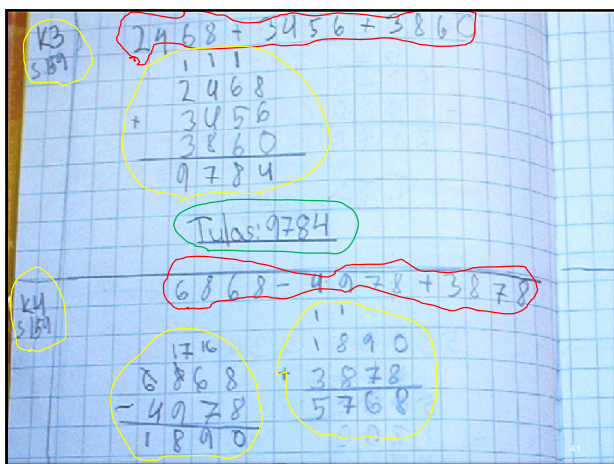 K3 2468 + 3456 + 3860
s.159
1 1 1
2468
+ 3456
3860
9784
Tulos: 9784
K4 6868 - 4978 + 3878
s.159
17 16
6868
- 4978
1890
1 1
1890
+ 3878
5768
41